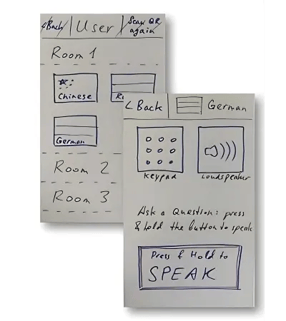 <Back
User
Scan QR
again
Room 1
Chinese
German
Room 2
Room 3
< Back
German
Keypad
Loudspeaker
Ask a Question: press
& hold the button to speak
Press & Hold to
SPEAK